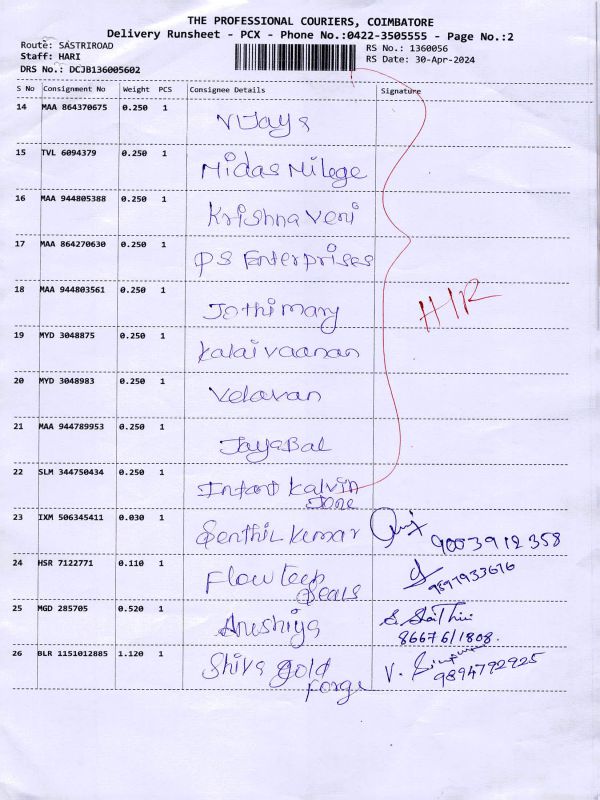 THE PROFESSIONAL COURIERS, COIMBATORE
Delivery Runsheet - PCX - Phone No.:0422-3505555 - Page No.:2
Route: SASTRIROAD
Staff: HARI
DRS No.: DCJB136005602
RS No.: 1360056
RS Date: 30-Apr-2024
S No Consignment No Weight PCS Consignee Details Signature
14 MAA 864370675 0.250 1 Vijaya
15 TVL 6094379 0.250 1 Midas Milege
16 MAA 944805388 0.250 1 Krishna Veni
17 MAA 864270630 0.250 1 PS Enterprises
18 MAA 944803561 0.250 1 Jothi mary
HIR
19 MYD 3048875 0.250 1 Kalai vaanan
20 MYD 3048983 0.250 1 Velavan
21 MAA 944789953 0.250 1 JayaBal
22 SLM 344750434 0.250 1 Infant Kalvin
Jone
23 IXM 506345411 0.030 1 Senthil Kumar 9003912358
24 HSR 7122771 0.110 1 Flow teek
Seals 9897933676
25 MGD 285705 0.520 1 Anushiya
86676/1808.
26 BLR 1151012885 1.120 1 Shiva gold
forge V. 9894792925